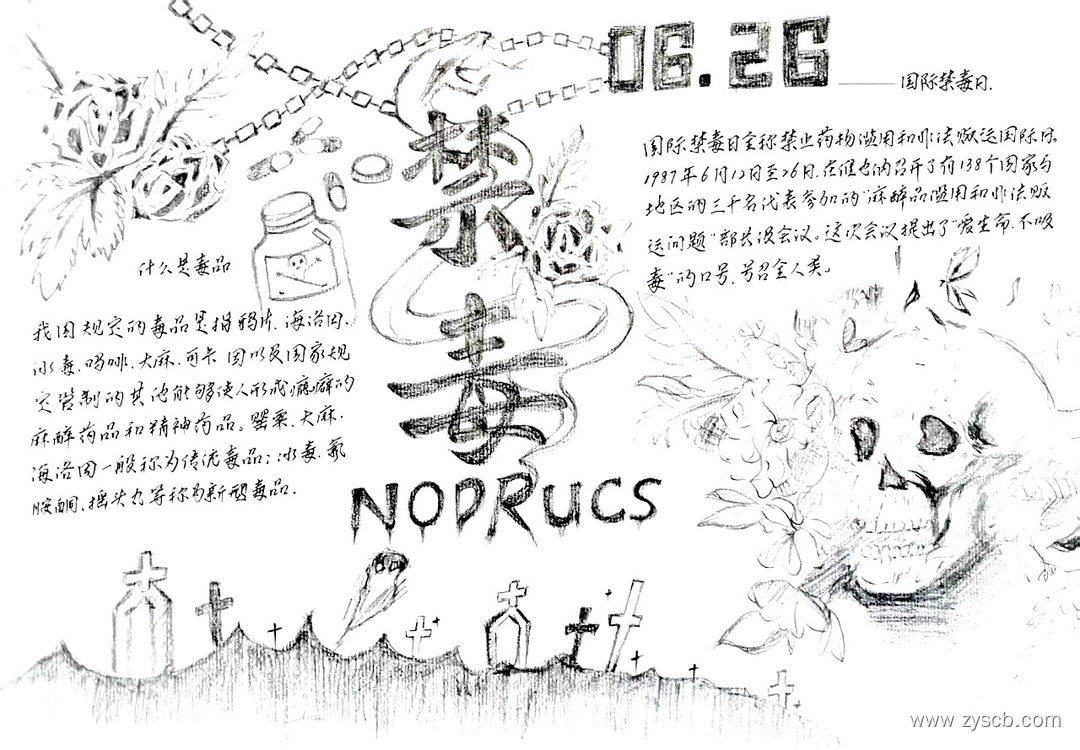 06.26
——国际禁毒日.
禁毒
NODRUGS
国际禁毒日全称禁止药物滥用和非法贩运国际日.
1987年6月12日至26日.在维也纳召开了有138个国家与
地区的三千名代表参加的"麻醉品滥用和非法贩
运问题"部长级会议。这次会议提出了"爱生命.不吸
毒"的口号.号召全人类。
什么是毒品
我国规定的毒品是指鸦片.海洛因.
冰毒.吗啡.大麻.可卡因以及国家规
定管制的其他能够使人形成瘾癖的
麻醉药品和精神药品。罂粟.大麻.
海洛因一般称为传统毒品;冰毒.氯
胺酮.摇头丸等称为新型毒品.
www.zyscb.com